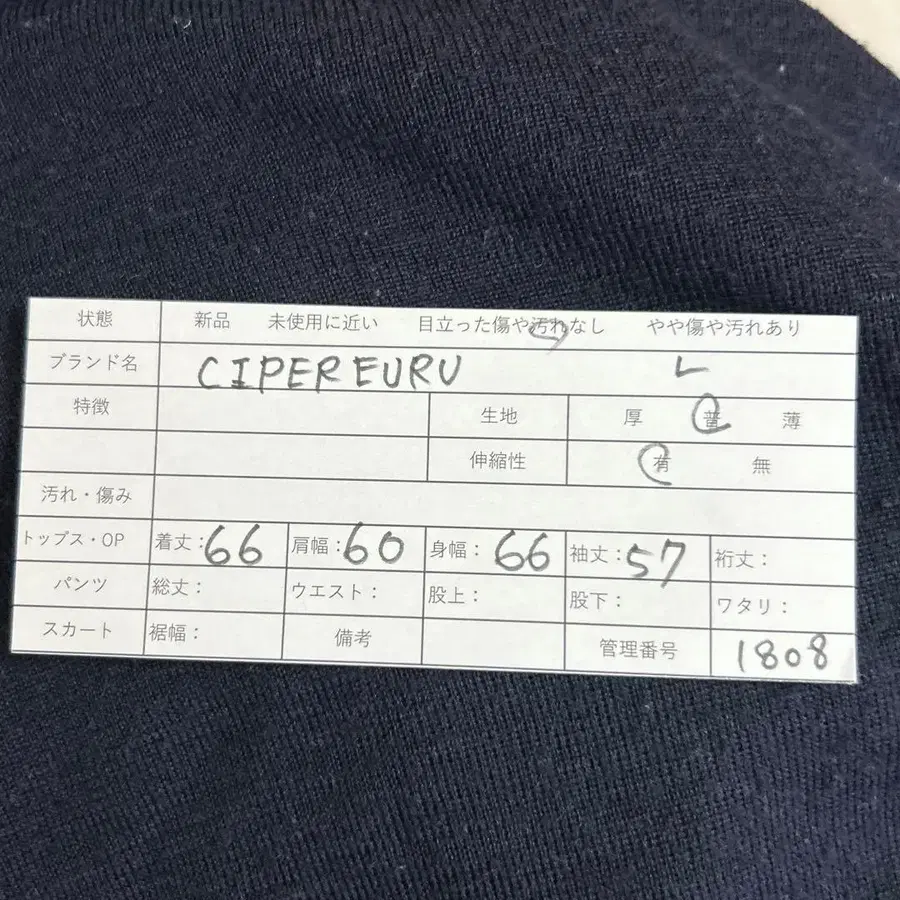 状態 新品 未使用に近い 目立った傷や汚れなし やや傷や汚れあり
ブランド名 CIPER EURU L
特徴 生地 厚 普 薄
伸縮性 有 無
汚れ・傷み
トップス・OP 着丈:66 肩幅:60 身幅:66 袖丈:57 裄丈:
パンツ 総丈: ウエスト: 股上: 股下: ワタリ:
スカート 裾幅: 備考 管理番号 1808